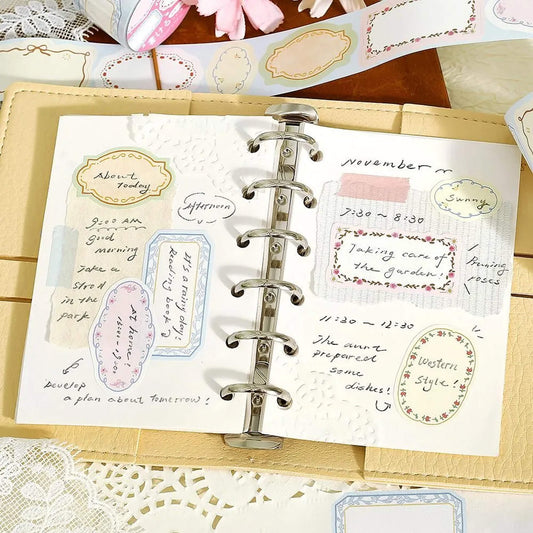 About
today
9:00 AM
good
morning
Take a
stroll
in the
park
Afternoon
It's a rainy day!
Reading book
At home!
Develop
a plan about tomorrow!
November
Sunny
7:30 ~ 8:30
Taking care of
the garden!
Pruning
roses
11:30 ~ 12:30
The aunt
prepared
some
dishes!
Western
Style!